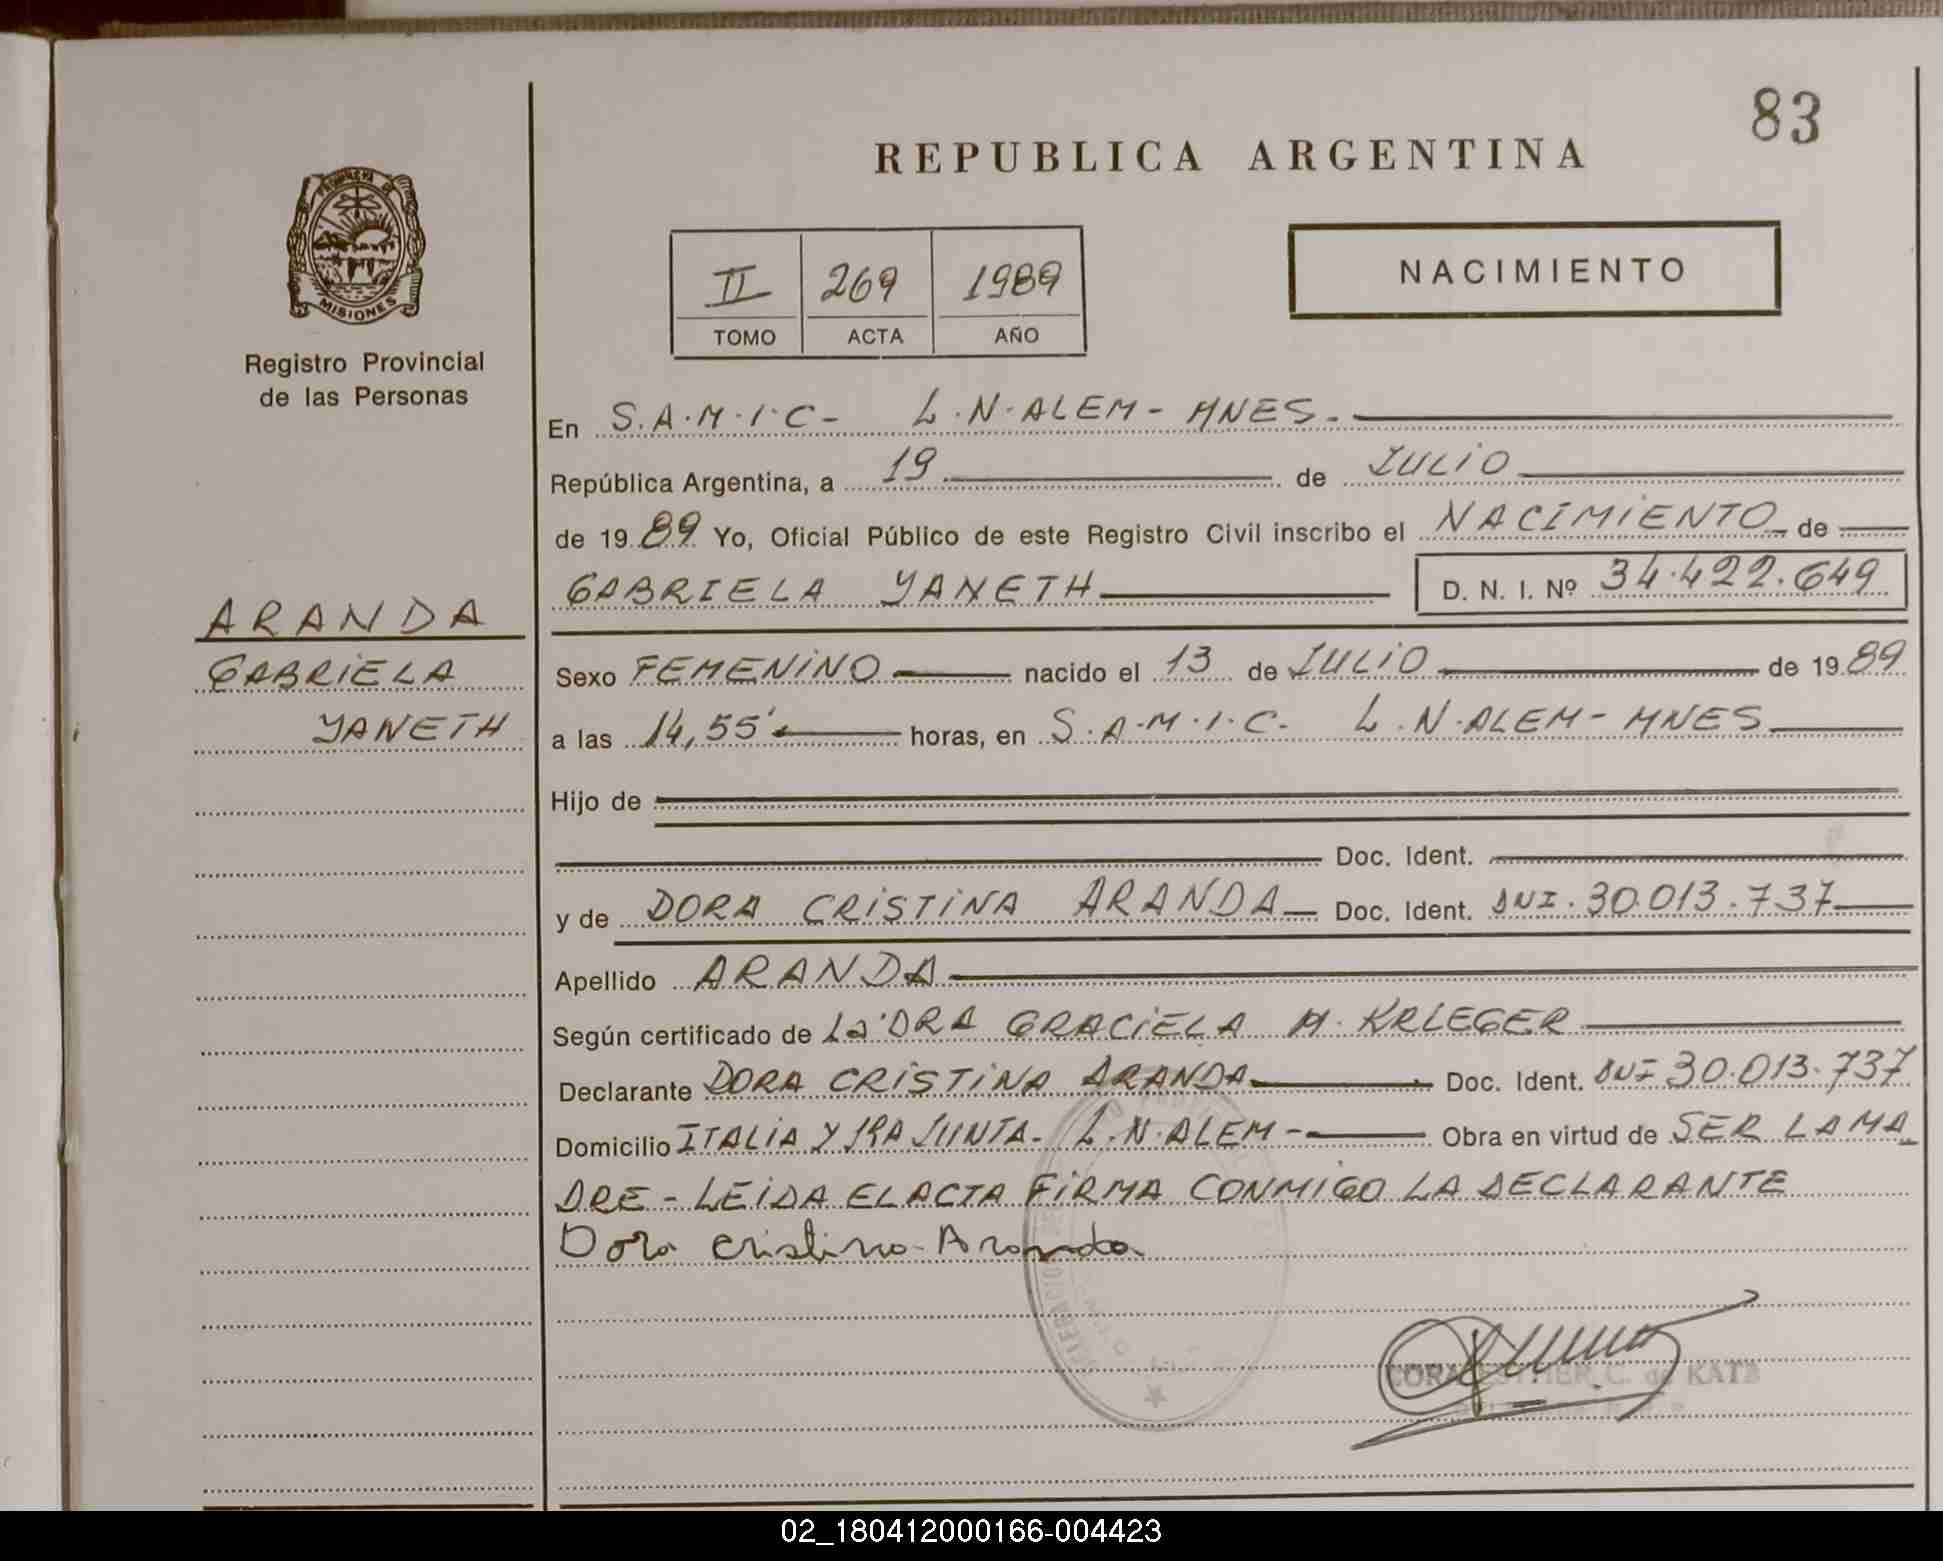 83
REPUBLICA ARGENTINA
PROVINCIA DE
MISIONES
Registro Provincial
de las Personas
II 269 1989
TOMO ACTA AÑO
NACIMIENTO
En S.A.M.I.C- L.N.ALEM- MNES.
República Argentina, a 19 de JULIO
de 1989 Yo, Oficial Público de este Registro Civil inscribo el NACIMIENTO de
GABRIELA YANETH D. N. I. Nº 34.422.649
ARANDA
GABRIELA
YANETH
Sexo FEMENINO nacido el 13 de JULIO de 1989
a las 14,55' horas, en S.A.M.I.C. L.N.ALEM- MNES
Hijo de
Doc. Ident.
y de DORA CRISTINA ARANDA Doc. Ident. DNI. 30.013.737
Apellido ARANDA
Según certificado de La DRA GRACIELA M. KRIEGER
Declarante DORA CRISTINA ARANDA Doc. Ident. DNI 30.013.737
Domicilio ITALIA Y 1RA JUNTA. L.N.ALEM- Obra en virtud de SER LA MA
DRE - LEIDA EL ACTA FIRMA CONMIGO LA DECLARANTE
Dora Cristina Aranda
ESTHER C. de KATZ
02_180412000166-004423